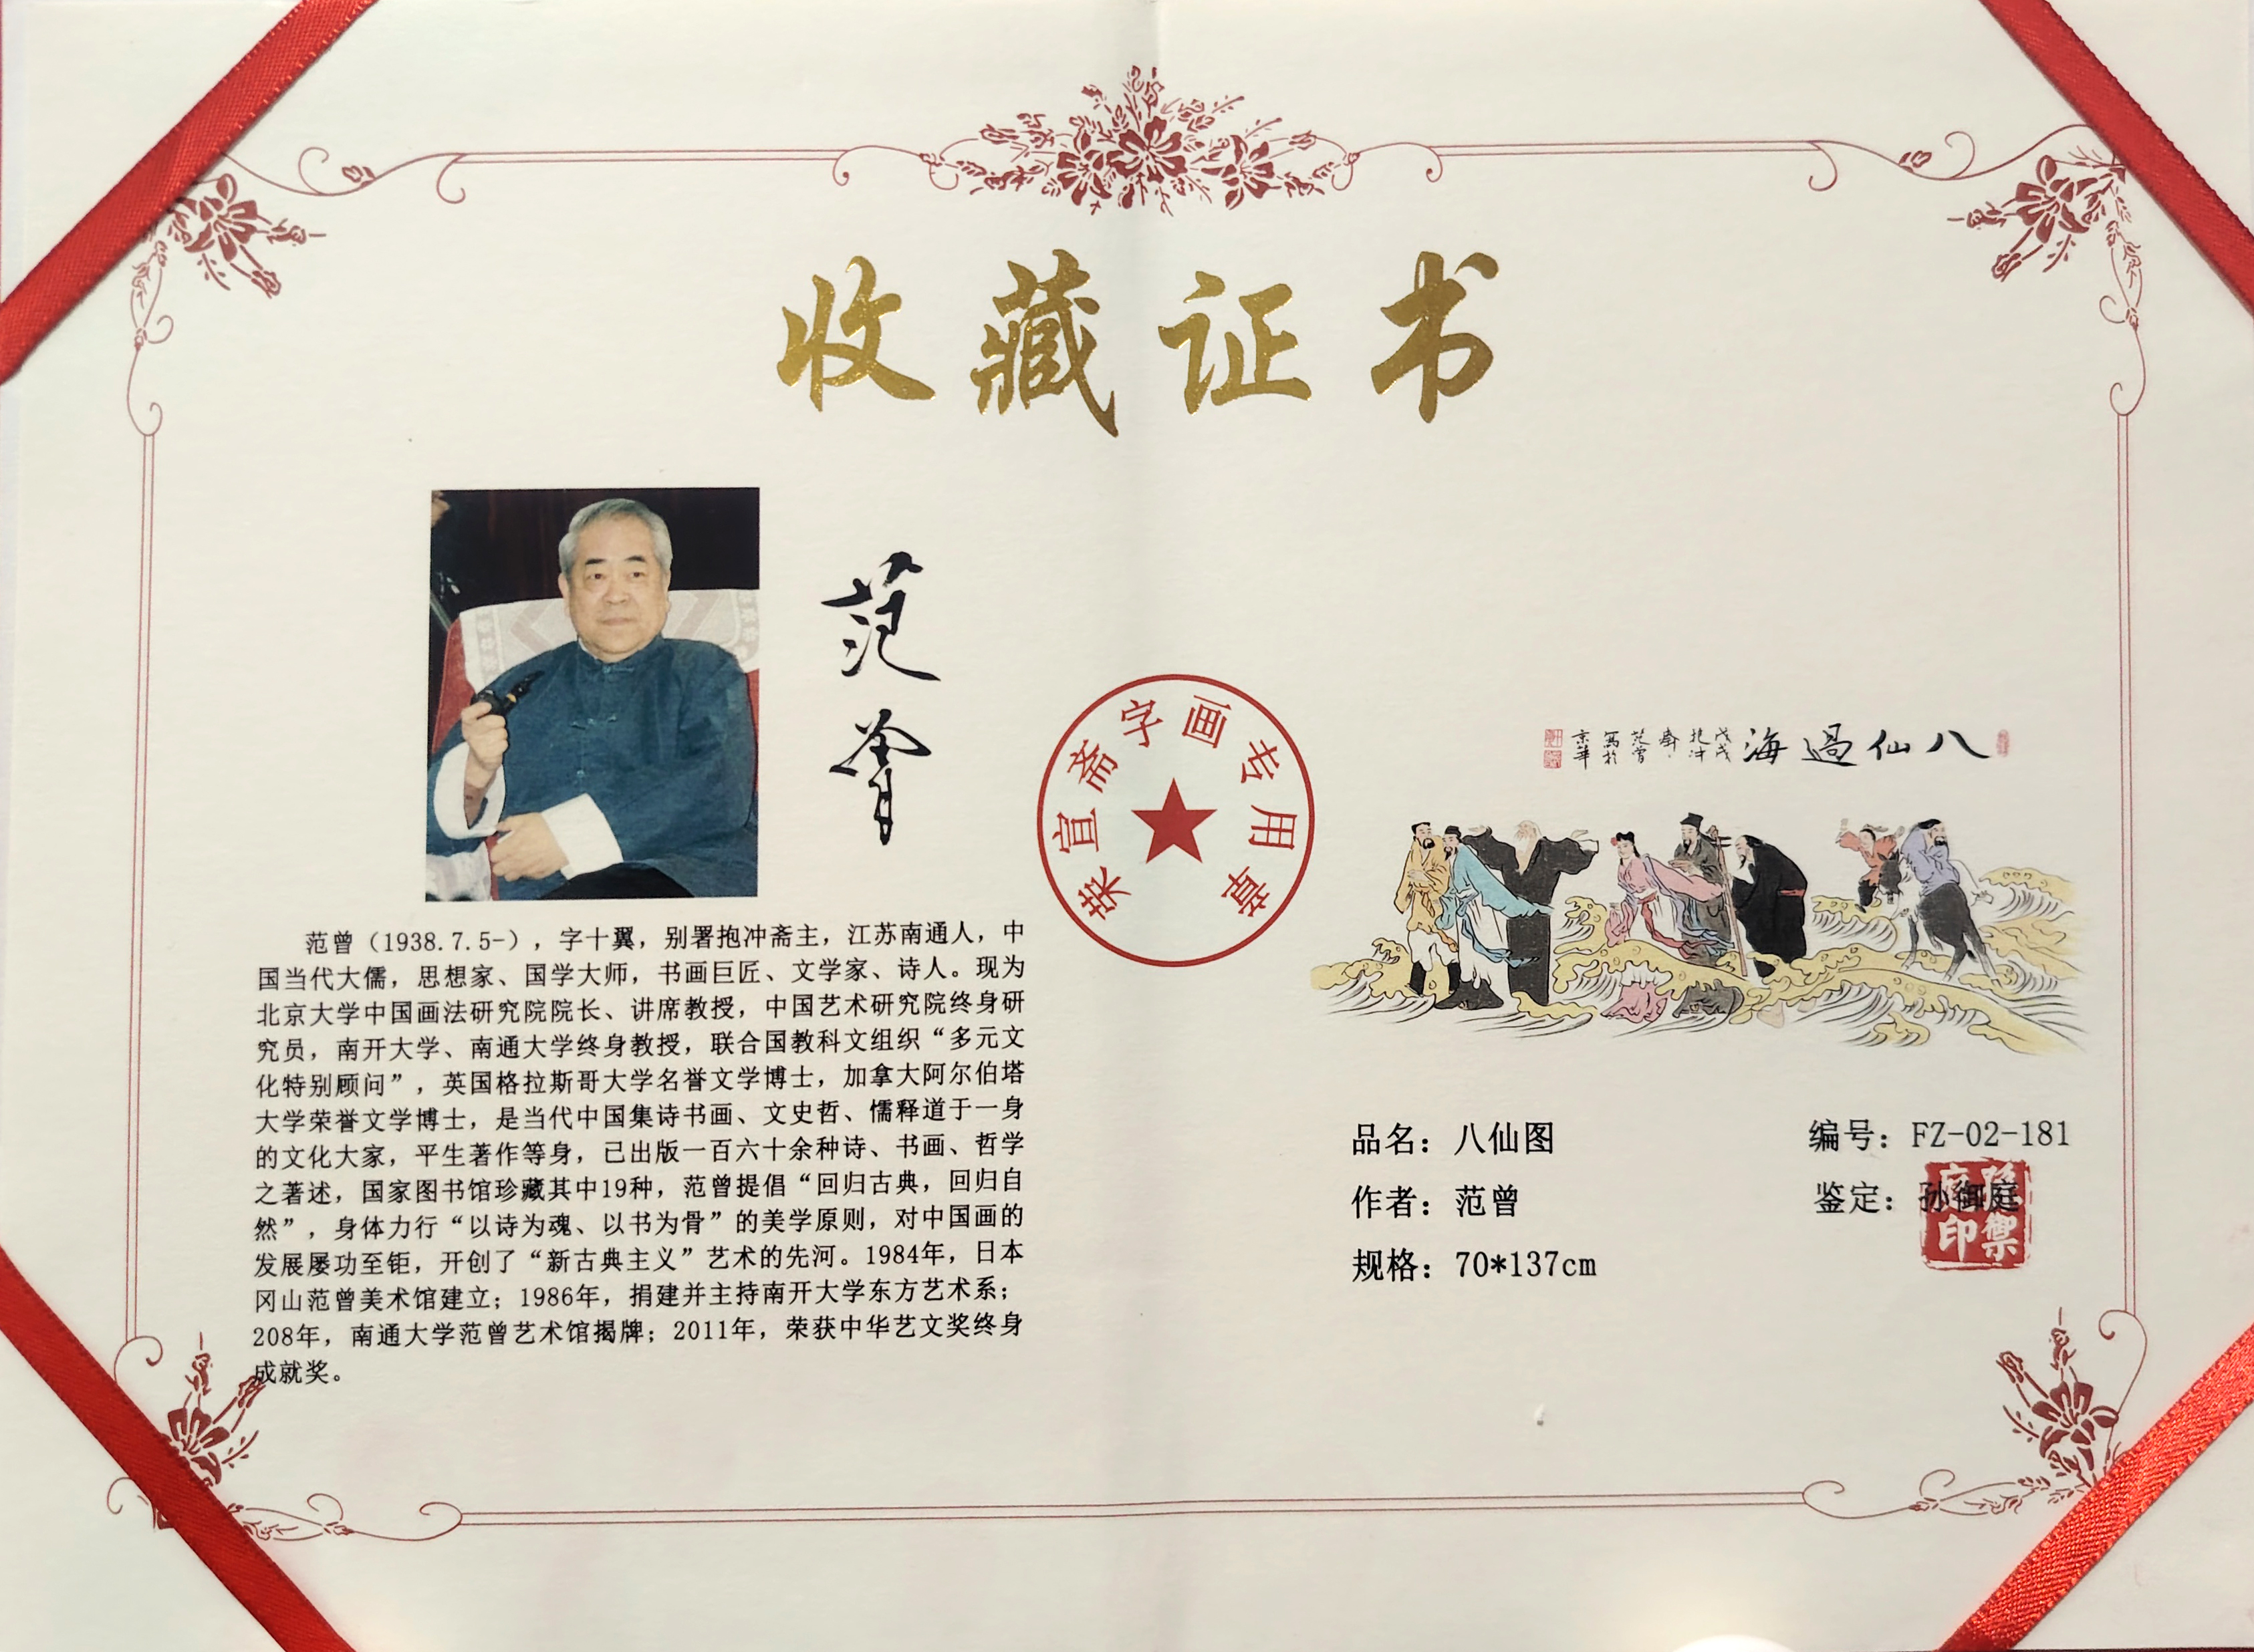 收藏证书
范曾
范曾（1938.7.5-），字十翼，别署抱冲斋主，江苏南通人，中
国当代大儒，思想家、国学大师，书画巨匠、文学家、诗人。现为
北京大学中国画法研究院院长、讲席教授，中国艺术研究院终身研
究员，南开大学、南通大学终身教授，联合国教科文组织“多元文
化特别顾问”，英国格拉斯哥大学名誉文学博士，加拿大阿尔伯塔
大学荣誉文学博士，是当代中国集诗书画、文史哲、儒释道于一身
的文化大家，平生著作等身，已出版一百六十余种诗、书画、哲学
之著述，国家图书馆珍藏其中19种，范曾提倡“回归古典，回归自
然”，身体力行“以诗为魂、以书为骨”的美学原则，对中国画的
发展屡功至钜，开创了“新古典主义”艺术的先河。1984年，日本
冈山范曾美术馆建立；1986年，捐建并主持南开大学东方艺术系；
208年，南通大学范曾艺术馆揭牌；2011年，荣获中华艺文奖终身
成就奖。
荣宣斋字画专用章
八仙過海
戊戌
抱冲
斋
范曾
寫於
京華
品名：八仙图
编号：FZ-02-181
作者：范曾
鉴定：孙御庭
规格：70*137cm